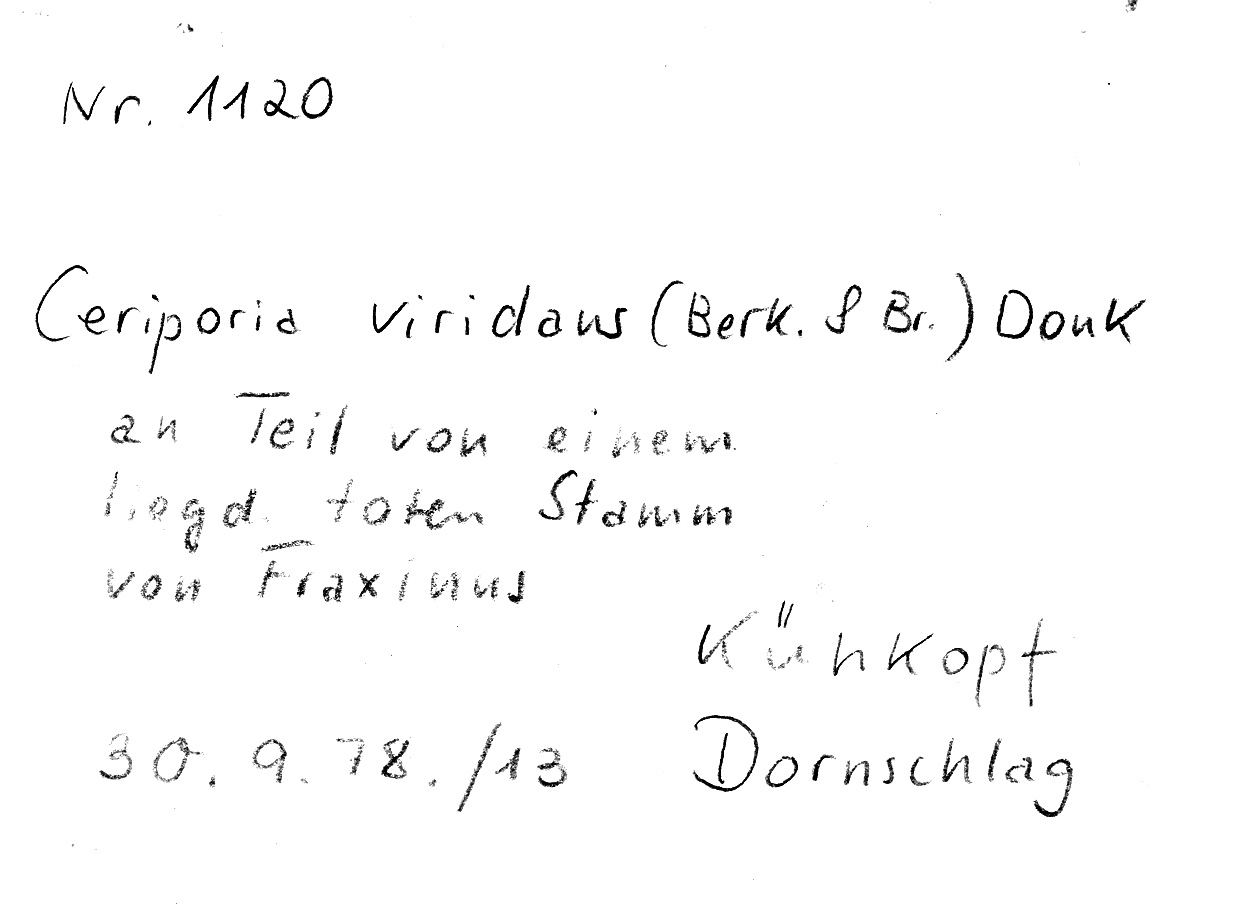 Nr. 1120
Ceriporia viridans (Berk. & Br.) Donk
an Teil von einem
liegd. toten Stamm
von Fraxinus
Kühkopf
30.9.78./13 Dornschlag